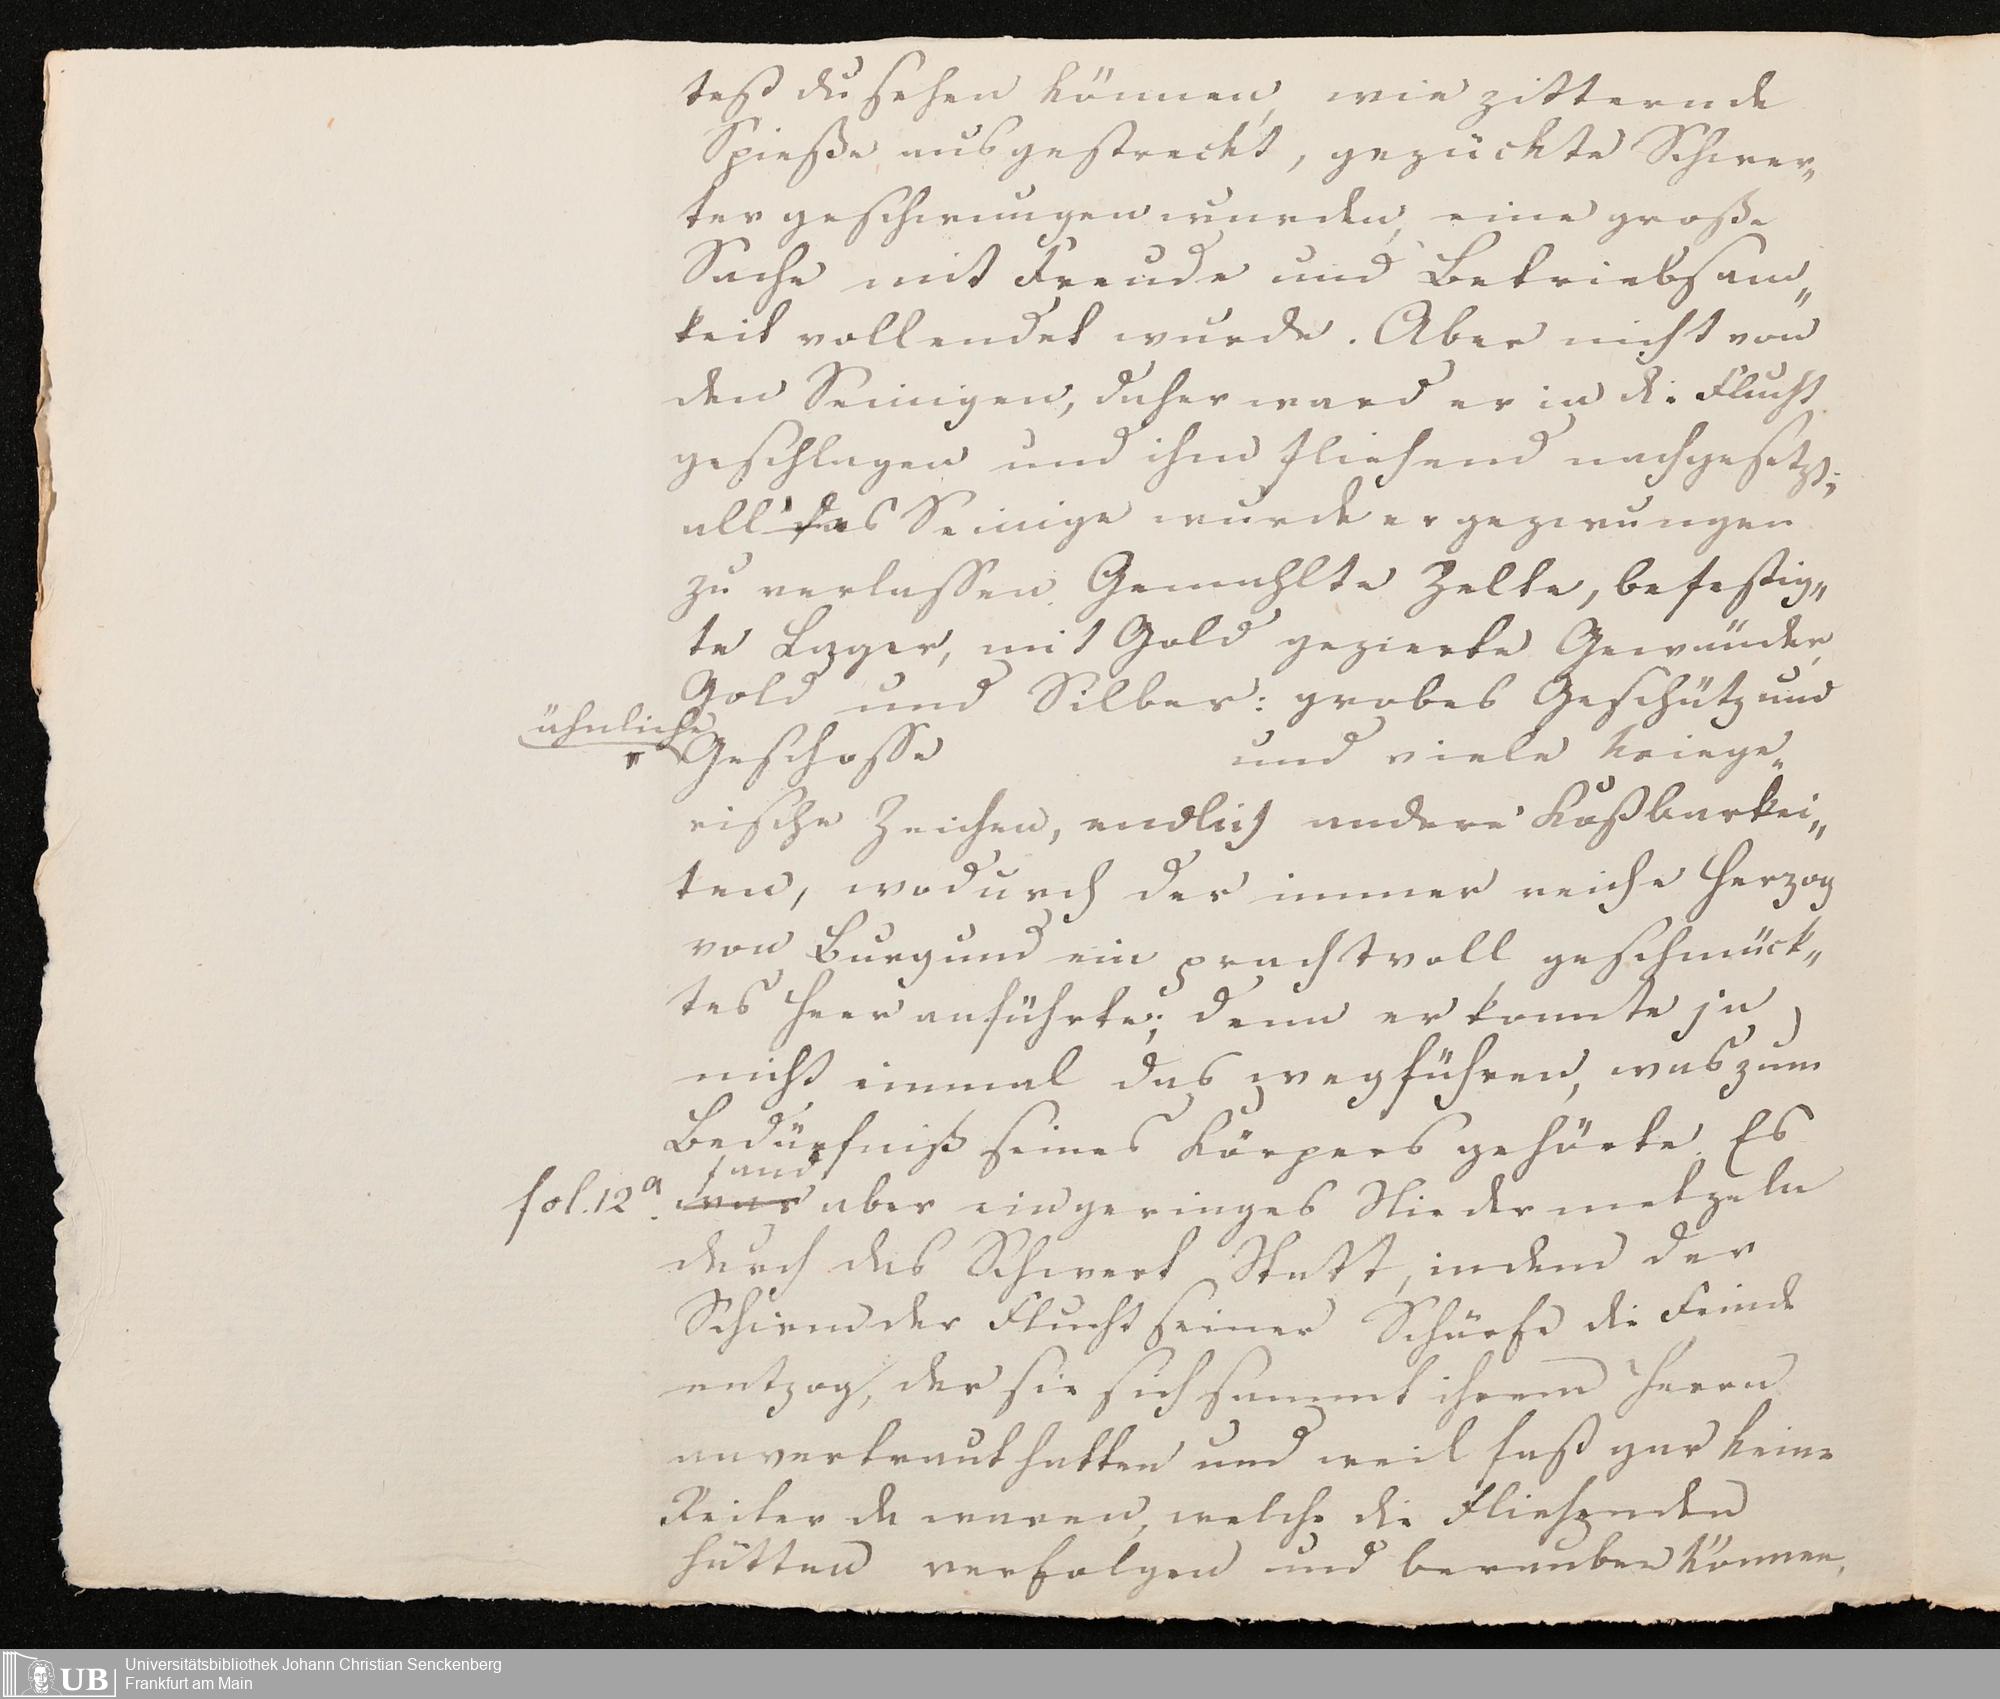 test du sehen können, wie zitternde
Spieße ausgestreckt, gezückte Schwer„
ter geschwungen wurden, eine große
Sache mit Freude und Betriebsam„
keit vollendet wurde. Aber nicht von
den Seinigen, daher ward er in die Flucht
geschlagen und ihm fliehend nachgesetzt;
all' das Seinige wurde er gezwungen
zu verlassen. Gemahlte Zelte, befestig„
te Lager, mit Gold gezierte Gewänder,
Gold und Silber: grobes Geschütz und
ähnliche
Geschosse und viele kriege„
rische Zeichen, endlich andere Kostbarkei„
ten, wodurch der immer reiche Herzog
von Burgund ein prachtvoll geschmück„
tes Heer anführte; denn er konnte ja
nicht einmal das wegführen, was zum
Bedürfniß seines Körpers gehörte. Es
fand
fol. 12a. war aber ein geringes Niedermetzeln
durch das Schwert Statt, indem der
Schirm der Flucht seiner Schärfe die Feinde
entzog, der sie sich sammt ihrem Herrn
anvertraut hatten und weil fast gar keine
Reiter da waren, welche die Fliehenden
hätten verfolgen und berauben können,
UB
Universitätsbibliothek Johann Christian Senckenberg
Frankfurt am Main